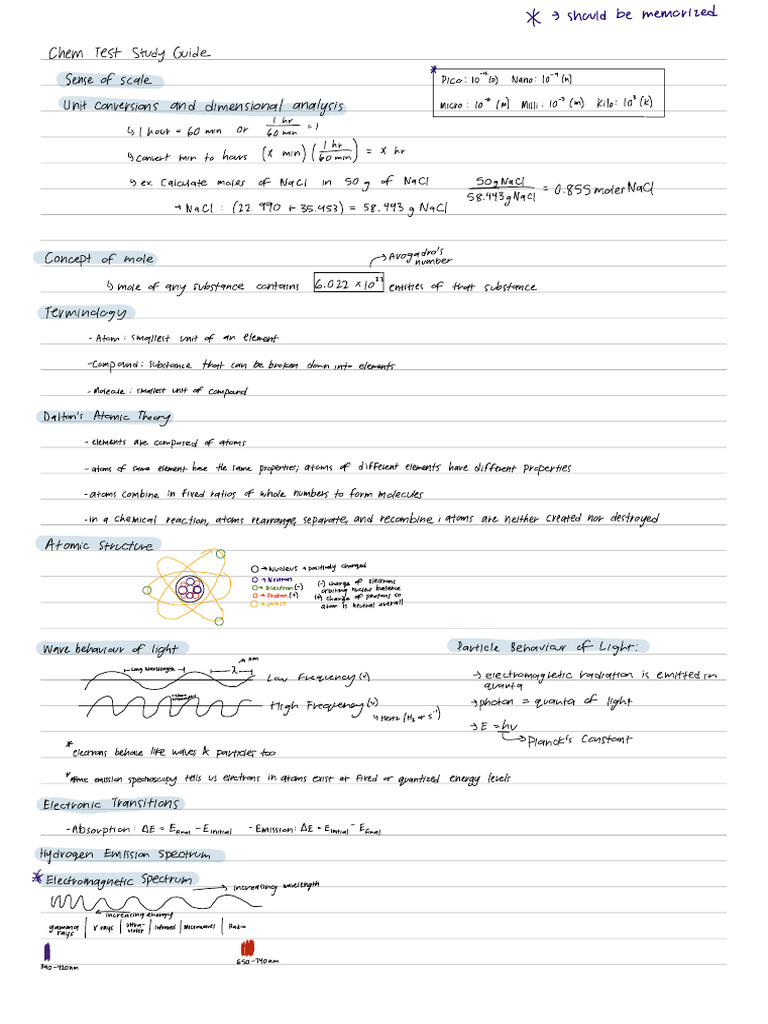 * → should be memorized
Chem Test Study Guide
Sense of scale
* Pico: 10⁻¹² (p) Nano: 10⁻⁹ (n)
Micro: 10⁻⁶ (m) Milli: 10⁻³ (m) Kilo: 10³ (k)
Unit conversions and dimensional analysis
↳ 1 hour = 60 min or 1 hr / 60 min = 1
↳ convert min to hours (x min) (1 hr / 60 min) = x hr
↳ ex. Calculate moles of NaCl in 50 g of NaCl 50g NaCl / 58.443g NaCl = 0.855 moles NaCl
→ NaCl : (22.990 + 35.453) = 58.443 g NaCl
Concept of mole
→ Avogadro's number
↳ mole of any substance contains 6.022 × 10²³ entities of that substance
Terminology
- Atom: smallest unit of an element
- Compound: substance that can be broken down into elements
- Molecule: smallest unit of compound
Dalton's Atomic Theory
- elements are composed of atoms
- atoms of same element have the same properties; atoms of different elements have different properties
- atoms combine in fixed ratios of whole numbers to form molecules
- in a chemical reaction, atoms rearrange, separate, and recombine; atoms are neither created nor destroyed
Atomic Structure
→ Nucleus → positively charged
→ Neutron
→ Electron (-)
→ Proton (+)
→ orbit
(-) charge of electrons
orbiting nuclei balance
(+) charge of protons so
atom is neutral overall
Wave behaviour of light
Long wavelength
λ → nm
Low Frequency (ν)
High Frequency (ν)
↳ Hertz (Hz or s⁻¹)
Particle Behaviour of Light:
→ electromagnetic radiation is emitted in
quanta
→ photon = quanta of light
→ E = hν
→ Planck's Constant
* electrons behave like waves & particles too
* Atomic emission spectroscopy tells us electrons in atoms exist at fixed or quantized energy levels
Electronic Transitions
- Absorption: ΔE = E final - E initial - Emission: ΔE = E initial - E final
Hydrogen Emission Spectrum
* Electromagnetic Spectrum
→ increasing wavelength
← increasing energy
gamma rays | X rays | ultra-violet | Infrared | Microwaves | Radio
390-420nm
650-740nm